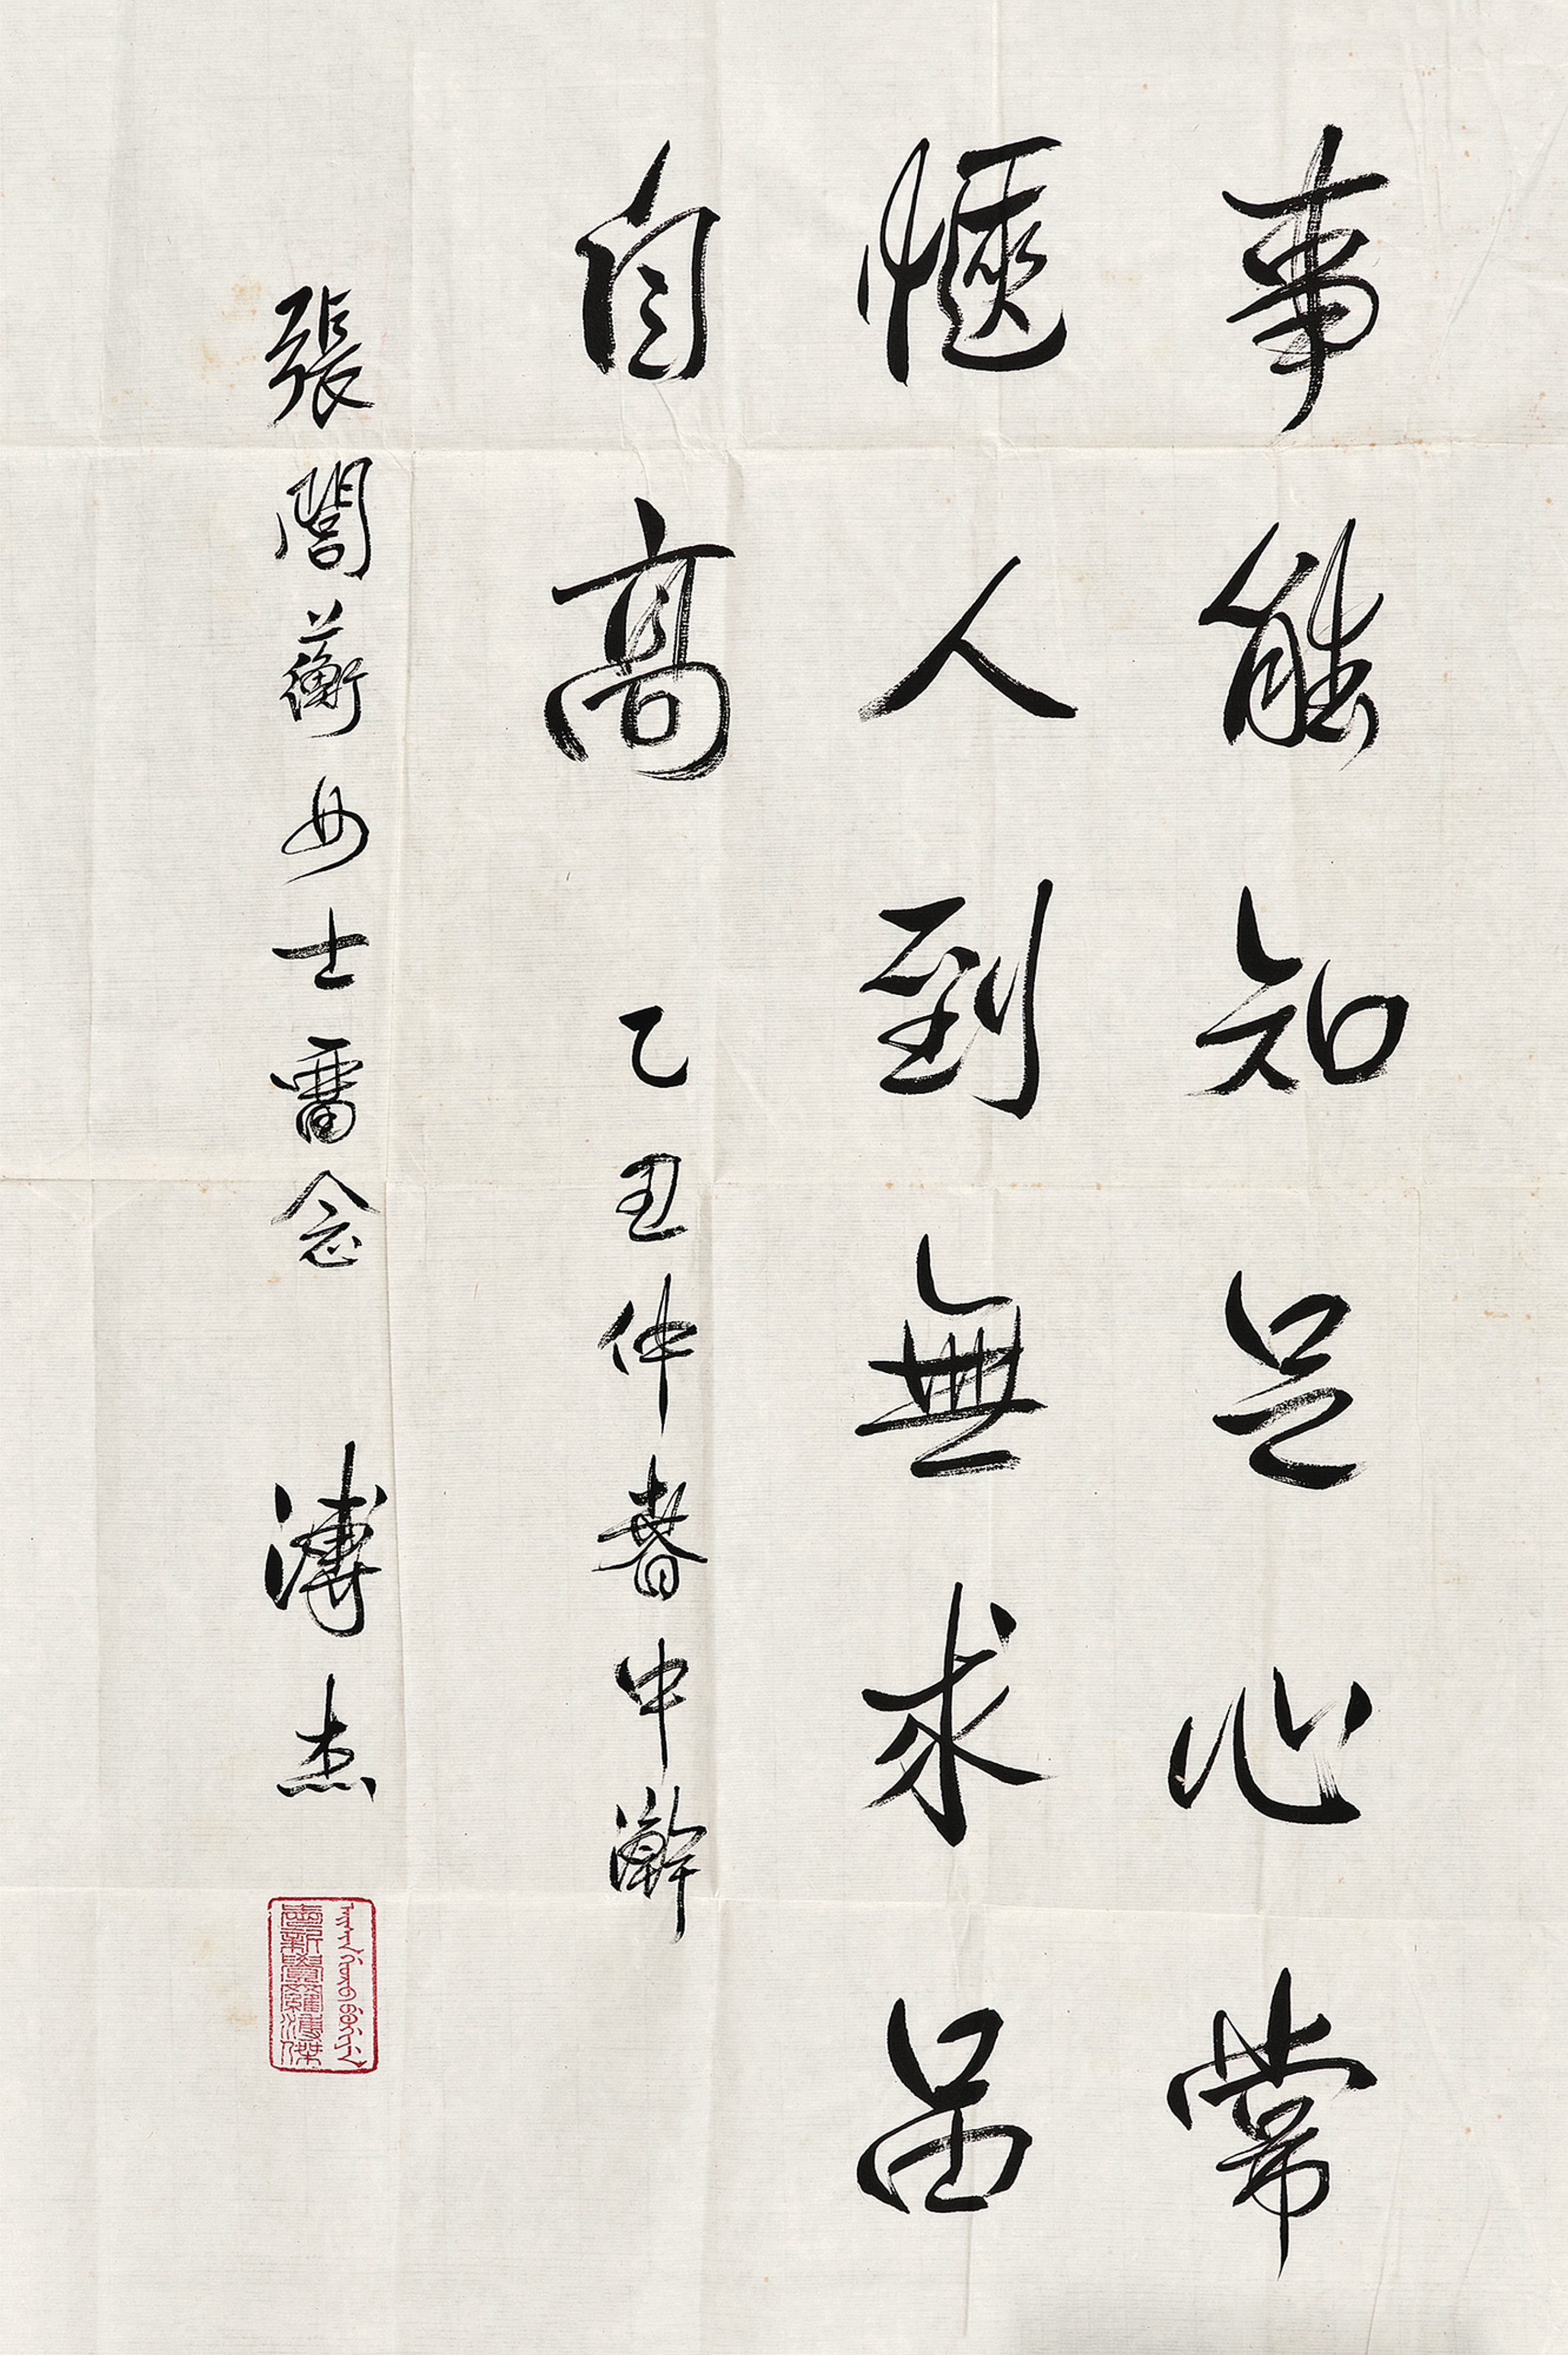 事能知足心常
愜人到無求品
自高 乙丑仲春中澣
張誾蘅女士畱念 溥杰
愛新覺羅溥傑